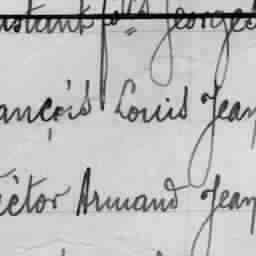 nstant fols George
ançois Louis Jean
ictor Armand Jean